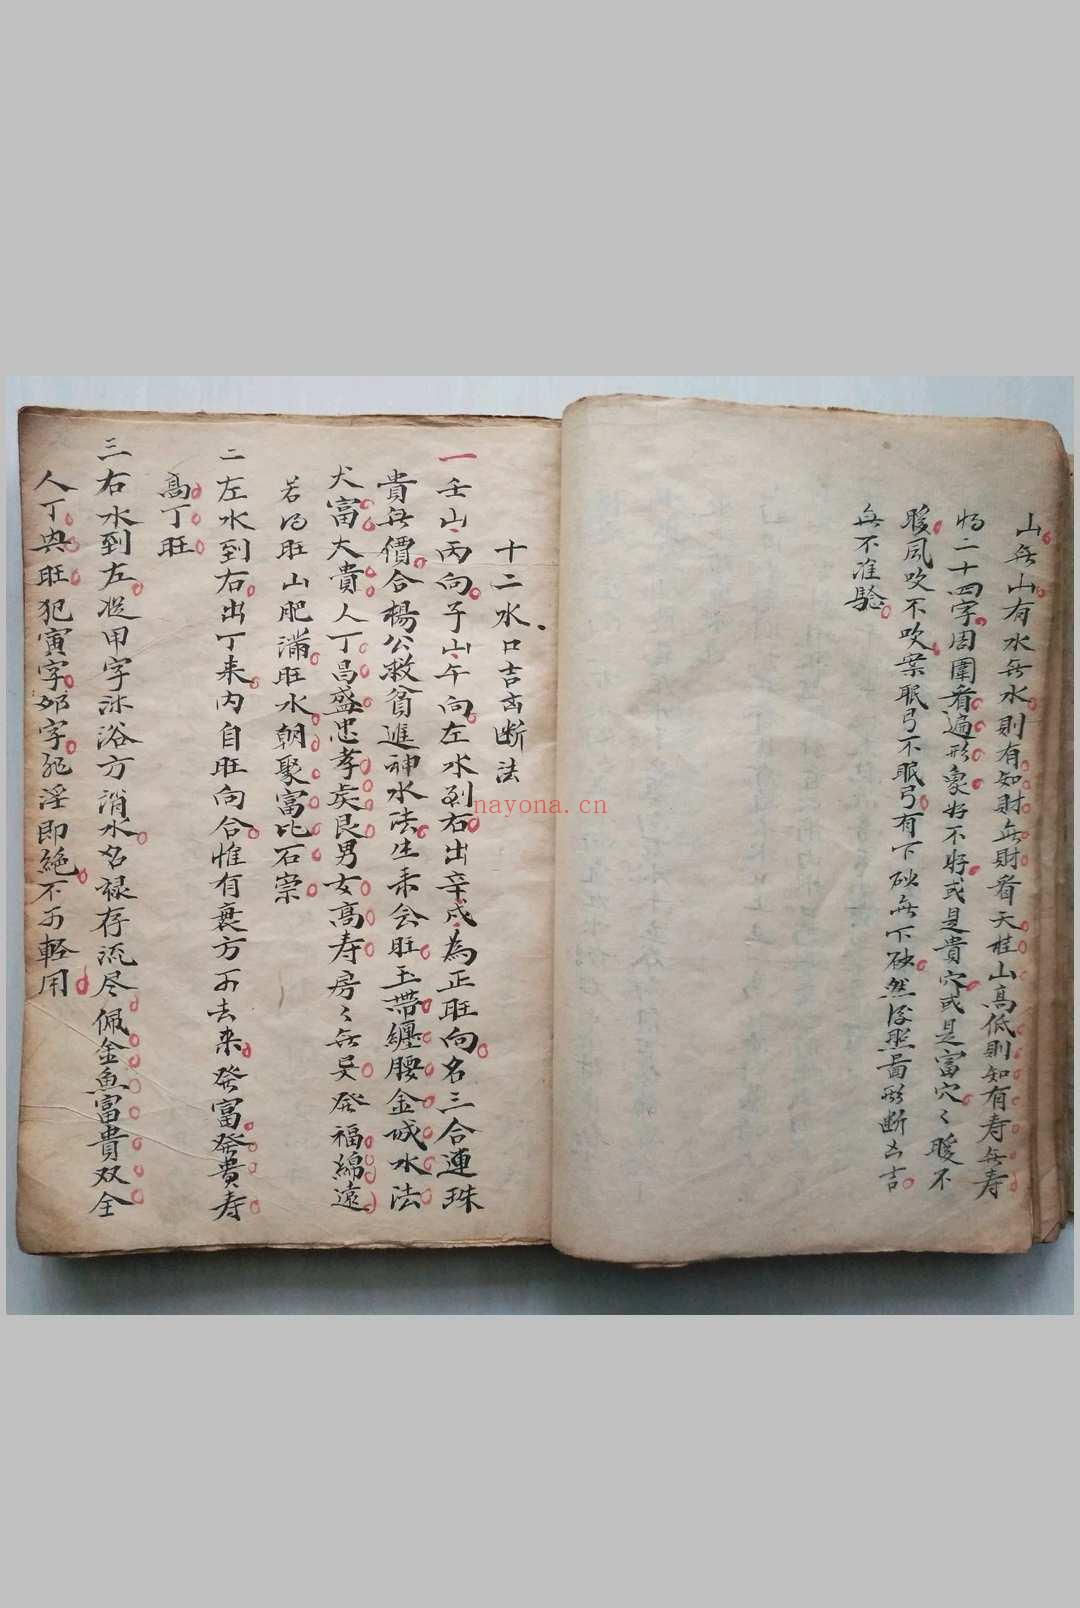 山無山有水無水則有知財無財看天柱山高低則知有寿無寿
二十四字周圍看遍形象好不好或是貴穴或是富穴々暖不
暖風吹不吹案眠弓不眠弓有下砂無下砂然後照圖形断凶吉
無不准驗
十二水口吉凶断法
一壬山丙向子山午向左水到右出辛戌為正旺向名三合連珠
貴無價合楊公救貧進神水法生来会旺玉帶纏腰金城水法
大富大貴人丁昌盛忠孝矣良男女高寿房々無異發福綿遠
若得旺山肥滿旺水朝聚富比石崇
二左水到右出丁来内自旺向合惟有衰方可去来發富發貴寿
高丁旺
三右水到左従甲字沐浴方消水名禄存流尽佩金魚富貴双全
人丁興旺犯寅字卯字非淫即絶不可輕用
nayona.cn